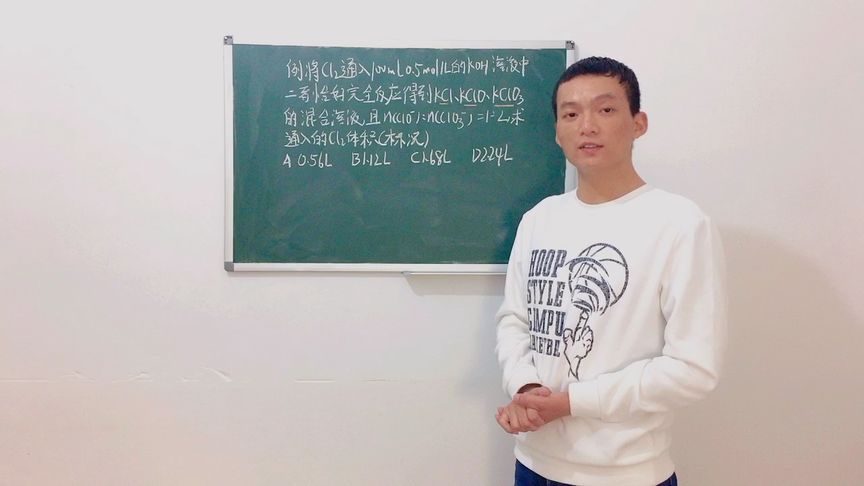 例将Cl₂通入100mL0.5mol/L的KOH溶液中
二者恰好完全反应得到KCl、KClO、KClO₃
的混合溶液,且n(ClO⁻):n(ClO₃⁻)=1:2,求
通入的Cl₂体积(标况)
A 0.56L B1.12L C1.68L D2.24L
HOOP
STYLE
SIMPU